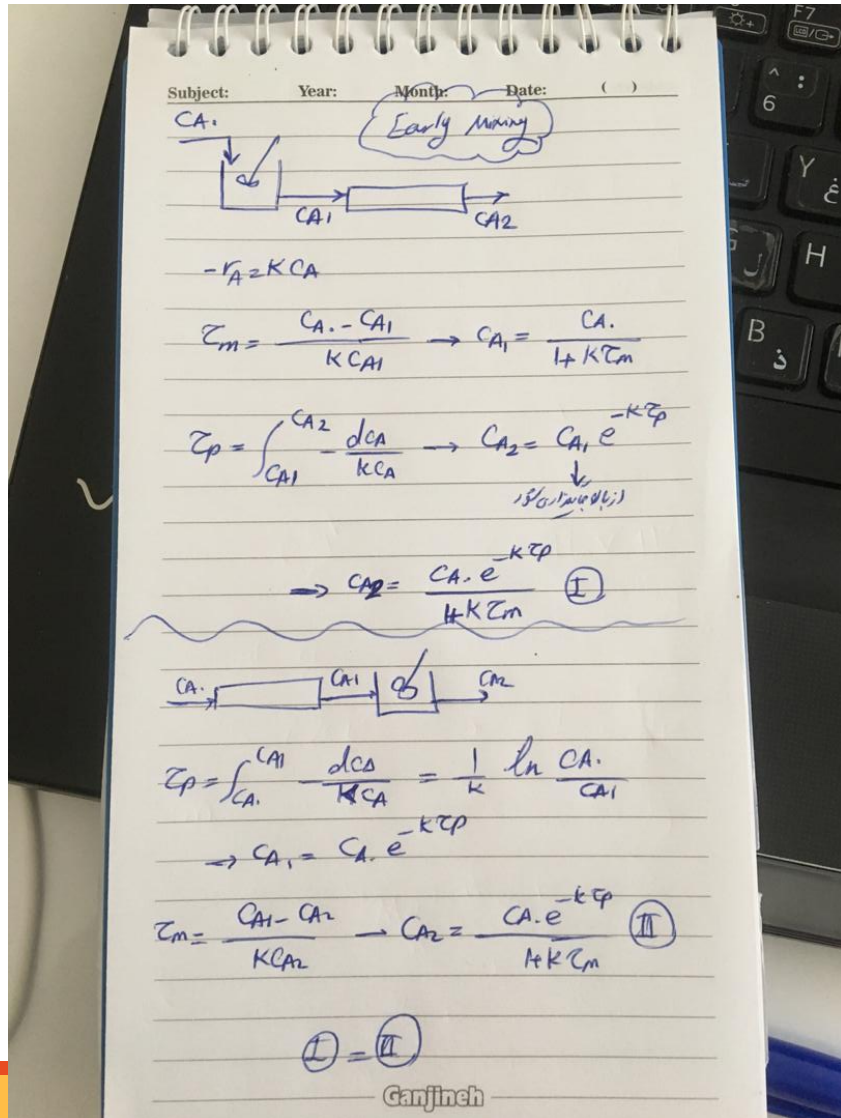 Subject: Year: Month: Date: ( )
Early Mixing
CA.
CA1 CA2
-rA = K CA
τm = (CA. - CA1) / (K CA1) → CA1 = CA. / (1 + K τm)
τp = ∫_CA1^CA2 - dCA / (K CA) → CA2 = CA1 e^(-Kτp)
→ CA2 = CA. e^(-Kτp) / (1 + K τm) Ⓘ
CA. CA1 CA2
τp = ∫_CA.^CA1 - dCA / (K CA) = 1/K ln CA. / CA1
→ CA1 = CA. e^(-Kτp)
τm = (CA1 - CA2) / (K CA2) → CA2 = CA. e^(-Kτp) / (1 + K τm) Ⅱ
Ⓘ = Ⅱ
Ganjineh
F7
6
Y غ
H
B ذ